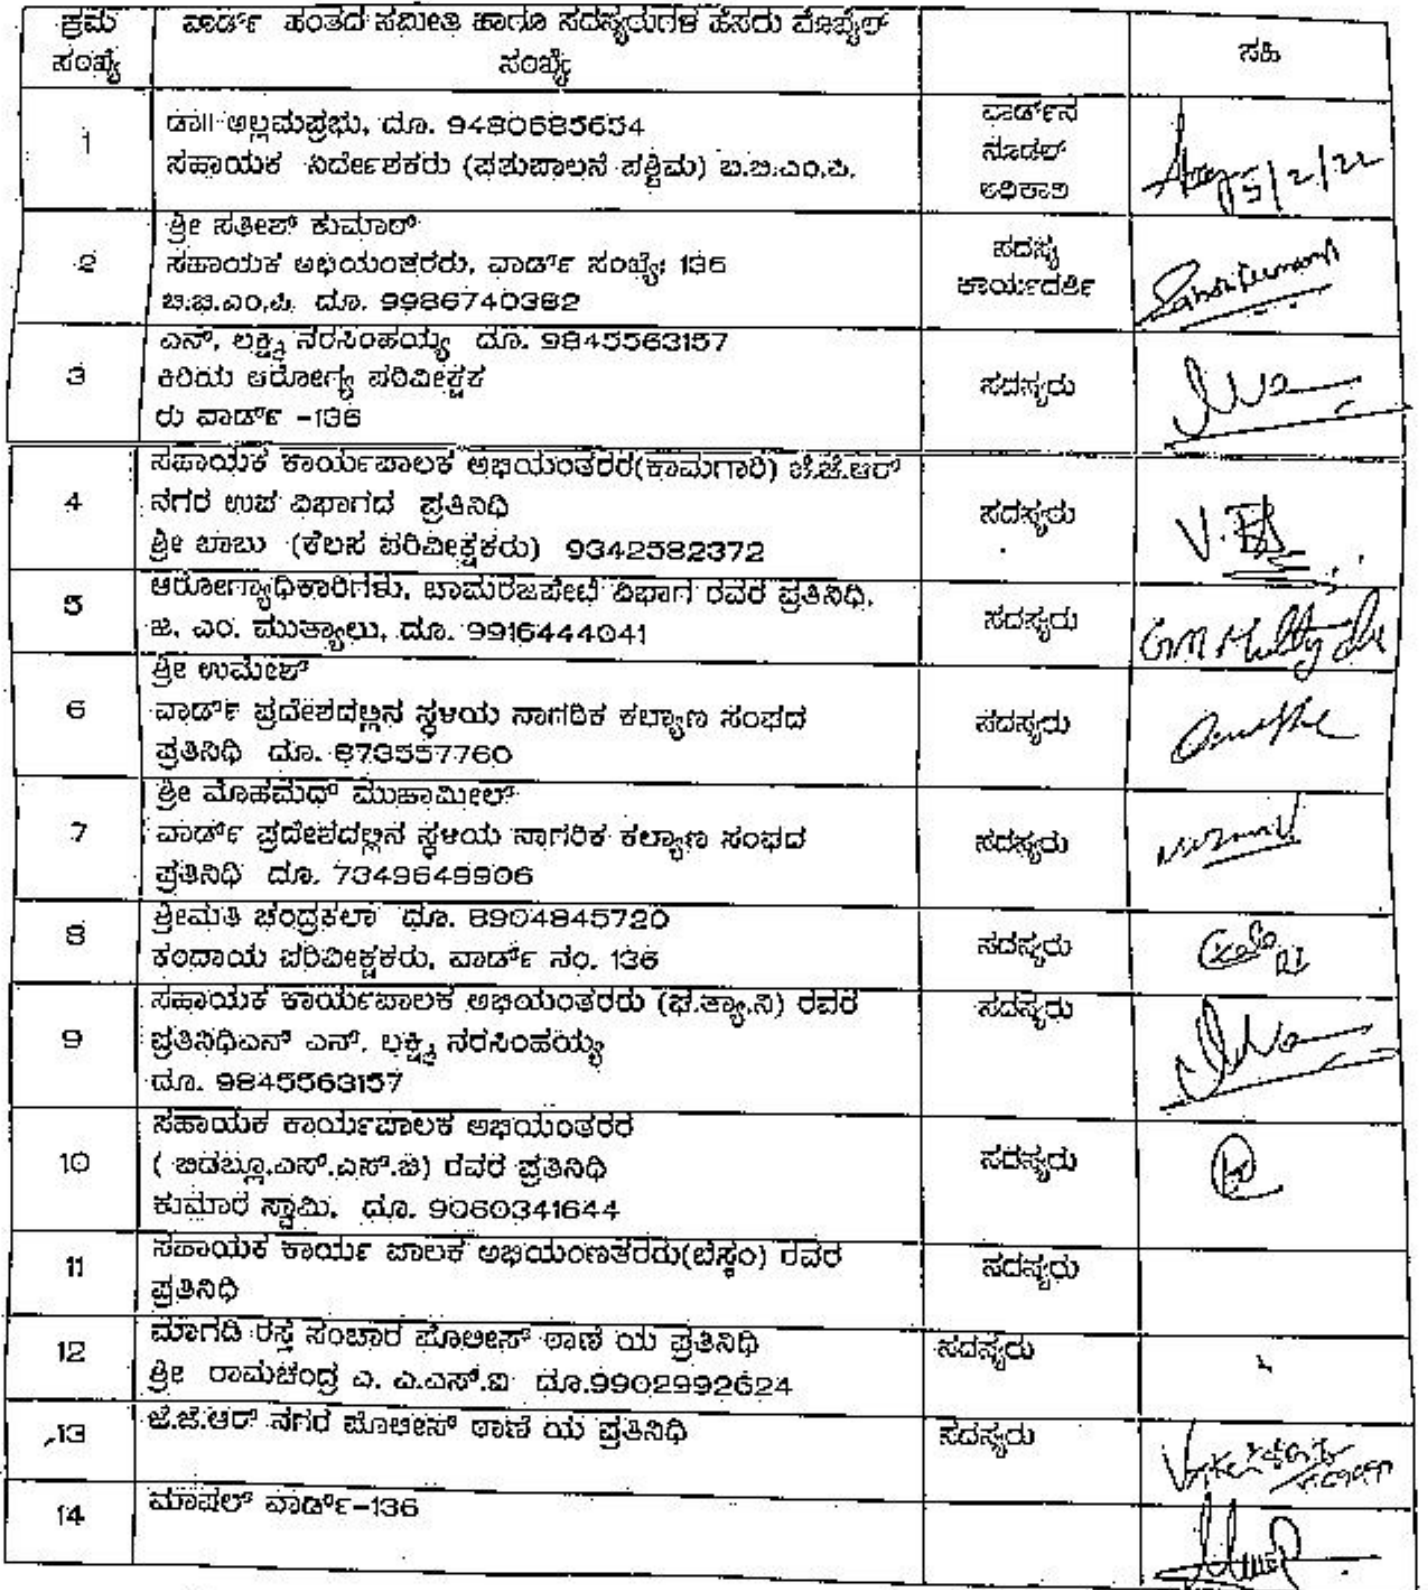 ಕ್ರಮ ಸಂಖ್ಯೆ
ವಾರ್ಡ್ ಹಂತದ ಸಮಿತಿ ಹಾಗೂ ಸದಸ್ಯರುಗಳ ಹೆಸರು ಮೊಬೈಲ್ ಸಂಖ್ಯೆ
ಸಹಿ
1
ಡಾ|| ಅಲ್ಲಮಪ್ರಭು, ದೂ. 9480685654
ಸಹಾಯಕ ನಿರ್ದೇಶಕರು (ಪಶುಪಾಲನೆ ಪಶ್ಚಿಮ) ಬಿ.ಬಿ.ಎಂ.ಪಿ.
ವಾರ್ಡ್‌ನ
ನೂಡಲ್
ಅಧಿಕಾರಿ
5/2/22
2
ಶ್ರೀ ಸತೀಶ್ ಕುಮಾರ್
ಸಹಾಯಕ ಅಭಿಯಂತರರು, ವಾರ್ಡ್ ಸಂಖ್ಯೆ: 136
ಬಿ.ಬಿ.ಎಂ.ಪಿ. ದೂ. 9986740382
ಸದಸ್ಯ
ಕಾರ್ಯದರ್ಶಿ
3
ಎನ್. ಲಕ್ಷ್ಮಿ ನರಸಿಂಹಯ್ಯ ದೂ. 9845563157
ಕಿರಿಯ ಆರೋಗ್ಯ ಪರಿವೀಕ್ಷಕ
ರು ವಾರ್ಡ್ -136
ಸದಸ್ಯರು
4
ಸಹಾಯಕ ಕಾರ್ಯಪಾಲಕ ಅಭಿಯಂತರರ(ಕಾಮಗಾರಿ) ಜೆ.ಜೆ.ಆರ್
ನಗರ ಉಪ ವಿಭಾಗದ ಪ್ರತಿನಿಧಿ
ಶ್ರೀ ಬಾಬು (ಕೆಲಸ ಪರಿವೀಕ್ಷಕರು) 9342582372
ಸದಸ್ಯರು
5
ಆರೋಗ್ಯಾಧಿಕಾರಿಗಳು, ಚಾಮರಜಪೇಟೆ ವಿಭಾಗ ರವರ ಪ್ರತಿನಿಧಿ.
ಜಿ. ಎಂ. ಮುತ್ಯಾಲು, ದೂ. 9916444041
ಸದಸ್ಯರು
6
ಶ್ರೀ ಉಮೇಶ್
ವಾರ್ಡ್ ಪ್ರದೇಶದಲ್ಲಿನ ಸ್ಥಳಿಯ ನಾಗರಿಕ ಕಲ್ಯಾಣ ಸಂಘದ
ಪ್ರತಿನಿಧಿ ದೂ. 873557760
ಸದಸ್ಯರು
7
ಶ್ರೀ ಮೊಹಮದ್ ಮುಜಾಮೀಲ್
ವಾರ್ಡ್ ಪ್ರದೇಶದಲ್ಲಿನ ಸ್ಥಳಿಯ ನಾಗರಿಕ ಕಲ್ಯಾಣ ಸಂಘದ
ಪ್ರತಿನಿಧಿ ದೂ. 7349649906
ಸದಸ್ಯರು
8
ಶ್ರೀಮತಿ ಚಂದ್ರಕಲಾ ದೂ. 8904845720
ಕಂದಾಯ ಪರಿವೀಕ್ಷಕರು, ವಾರ್ಡ್ ನಂ. 136
ಸದಸ್ಯರು
9
ಸಹಾಯಕ ಕಾರ್ಯಪಾಲಕ ಅಭಿಯಂತರರು (ಘ.ತ್ಯಾ.ನಿ) ರವರ
ಪ್ರತಿನಿಧಿಎನ್ ಎನ್. ಲಕ್ಷ್ಮಿ ನರಸಿಂಹಯ್ಯ
ದೂ. 9845563157
ಸದಸ್ಯರು
10
ಸಹಾಯಕ ಕಾರ್ಯಪಾಲಕ ಅಭಿಯಂತರರ
( ಬಿಡಬ್ಲೂ.ಎಸ್.ಎಸ್.ಬಿ) ರವರ ಪ್ರತಿನಿಧಿ
ಕುಮಾರ ಸ್ವಾಮಿ, ದೂ. 9060341644
ಸದಸ್ಯರು
11
ಸಹಾಯಕ ಕಾರ್ಯ ಪಾಲಕ ಅಭಿಯಂಣತರರು(ಬೆಸ್ಕಂ) ರವರ
ಪ್ರತಿನಿಧಿ
ಸದಸ್ಯರು
12
ಮಾಗಡಿ ರಸ್ತೆ ಸಂಚಾರ ಪೊಲೀಸ್ ಠಾಣೆ ಯ ಪ್ರತಿನಿಧಿ
ಶ್ರೀ ರಾಮಚಂದ್ರ ಎ. ಎ.ಎಸ್.ಐ ದೂ.9902992624
ಸದಸ್ಯರು
13
ಜೆ.ಜೆ.ಆರ್ ನಗರ ಪೊಲೀಸ್ ಠಾಣೆ ಯ ಪ್ರತಿನಿಧಿ
ಸದಸ್ಯರು
14
ಮಾಷಲ್ ವಾರ್ಡ್-136